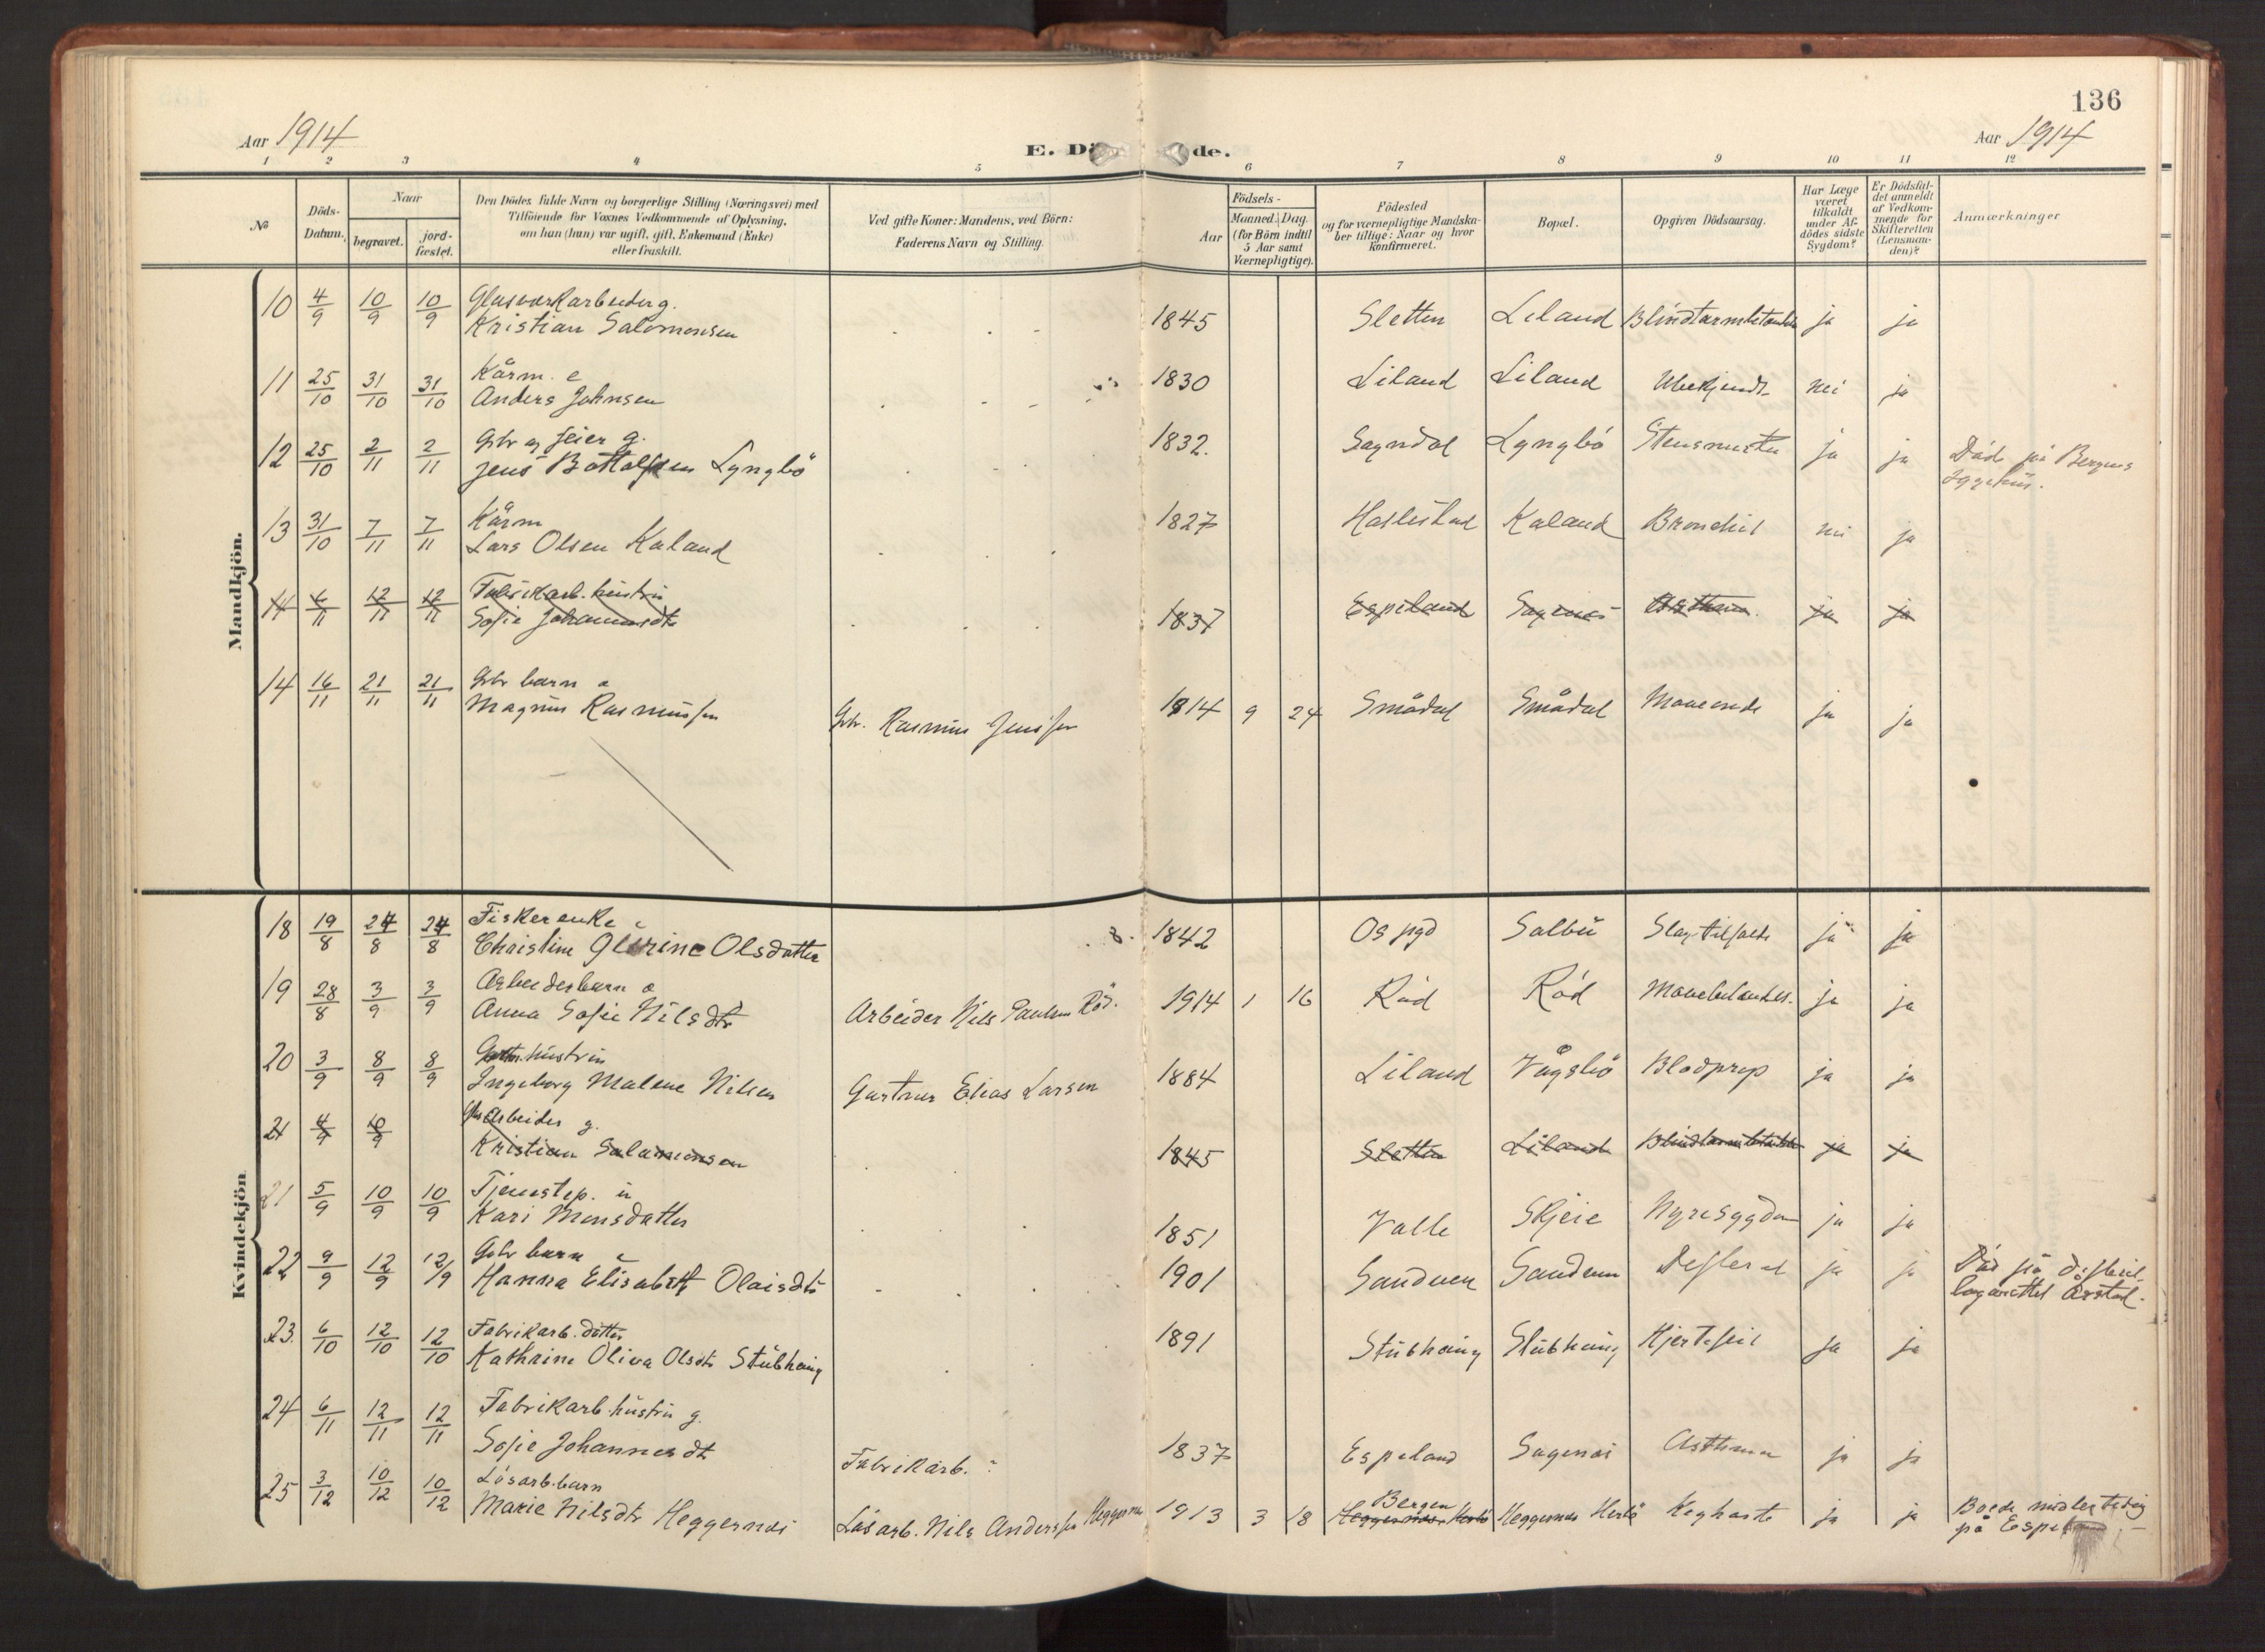 136
Aar 1914
E. Dö de.
Aar 1914
1 2 3 4 5 6 7 8 9 10 11 12
№
Döds-Datum.
Naar
begravet.
jord-fæstet.
Den Dödes fulde Navn og borgerlige Stilling (Næringsvei) med
Tilföiende for Voxnes Vedkommende af Oplysning,
om han (hun) var ugift, gift, Enkemand (Enke)
eller fraskilt.
Ved gifte Koner: Mandens, ved Börn:
Faderens Navn og Stilling.
Födsels-
Aar
Maaned. Dag.
(for Börn indtil
5 Aar samt
Værnepligtige).
Födested
og for værnepligtige Mandska-
ber tillige: Naar og hvor
konfirmeret.
Bopæl.
Opgiven Dödsaarsag.
Har Læge
været
tilkaldt
under Af-
dödes sidste
Sygdom?
Er Dödsfal-
det anmeldt
af Vedkom-
mende for
Skifteretten
(Lensman-
den)?
Anmærkninger
Mandkjön.
10 4/9 10/9 10/9 Glasverkarbeider g.
Kristian Salomonsen 1845 Sletten Liland ja ja
11 25/10 31/10 31/10 Kårm. e
Anders Johnsen 1830 Liland Liland Ubekjendt nei ja
12 25/10 2/11 2/11 Gbr og feier g.
Jens Lyngbö 1832. Sogndal Lyngbö ja ja Död på Bergens
Sygehus.
13 31/10 7/11 7/11 Kårm
Lars Olsen Kaland 1827 Kaland Bronchit nei ja
14 6/11 12/11 12/11 Fabrikarb. hustru
Sofie Johannesdtr 1837 Espeland Sagenes Asthma ja ja
14 16/11 21/11 21/11 Gbr barn
Magnus Rasmussen Gbr. Rasmus Jenssen 1914 9 24 Smådal Smådal ja ja
Kvindekjön
18 19/8 24/8 24/8 Fiskerenke
Christine Olsdatter 1842 Os pgd Salbu Slagtilfælde ja ja
19 28/8 3/9 3/9 Arbeiderbarn
Anna Sofie Nilsdtr Arbeider Nils Paulsen Röd. 1914 1 16 Röd Röd ja ja
20 3/9 8/9 8/9 hustru
Ingeborg Malene Nilsen Gartner Elias Larsen 1884 Liland Vågsbö Blodprop ja ja
21 4/9 10/9 Arbeider g.
Kristian Salamonsen 1845 Sletten Liland ja ja
21 5/9 10/9 10/9 Tjenestep. u
Kari Monsdatter 1851 Valle Skjeie Nyresygdom ja ja
22 9/9 12/9 12/9 Gbr barn
Hanna Elisabeth Olaisdtr 1901 Sandven Sandven ja ja Död på difterit
lazarettet Årstad.
23. 6/10 12/10 12/10 Fabrikarb. datter
Kathrine Oliva Olsdtr Stubhaug 1891 Stubhaug Stubhaug Hjertefeil ja ja
24 6/11 12/11 12/11 Fabrikarb. hustru g.
Sofie Johannesdtr Fabrikarb. 1837 Espeland Sagenes Asthma ja ja
25 3/12 10/12 10/12 Lösarb. barn
Marie Nilsdtr Heggernes Lösarb. Nils Anderssen Heggernes 1913 3 18 Bergen
Heggernes Herlö Heggernes Herlö Kighoste ja ja Boede midlertidig
på Espeland